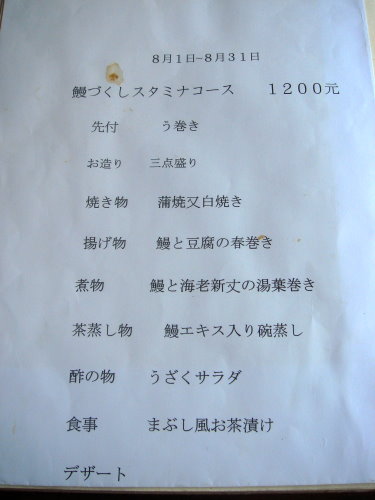 8月1日-8月31日
鰻づくしスタミナコース 1200元
先付 う巻き
お造り 三点盛り
焼き物 蒲焼又白焼き
揚げ物 鰻と豆腐の春巻き
煮物 鰻と海老新丈の湯葉巻き
茶蒸し物 鰻エキス入り碗蒸し
酢の物 うざくサラダ
食事 まぶし風お茶漬け
デザート